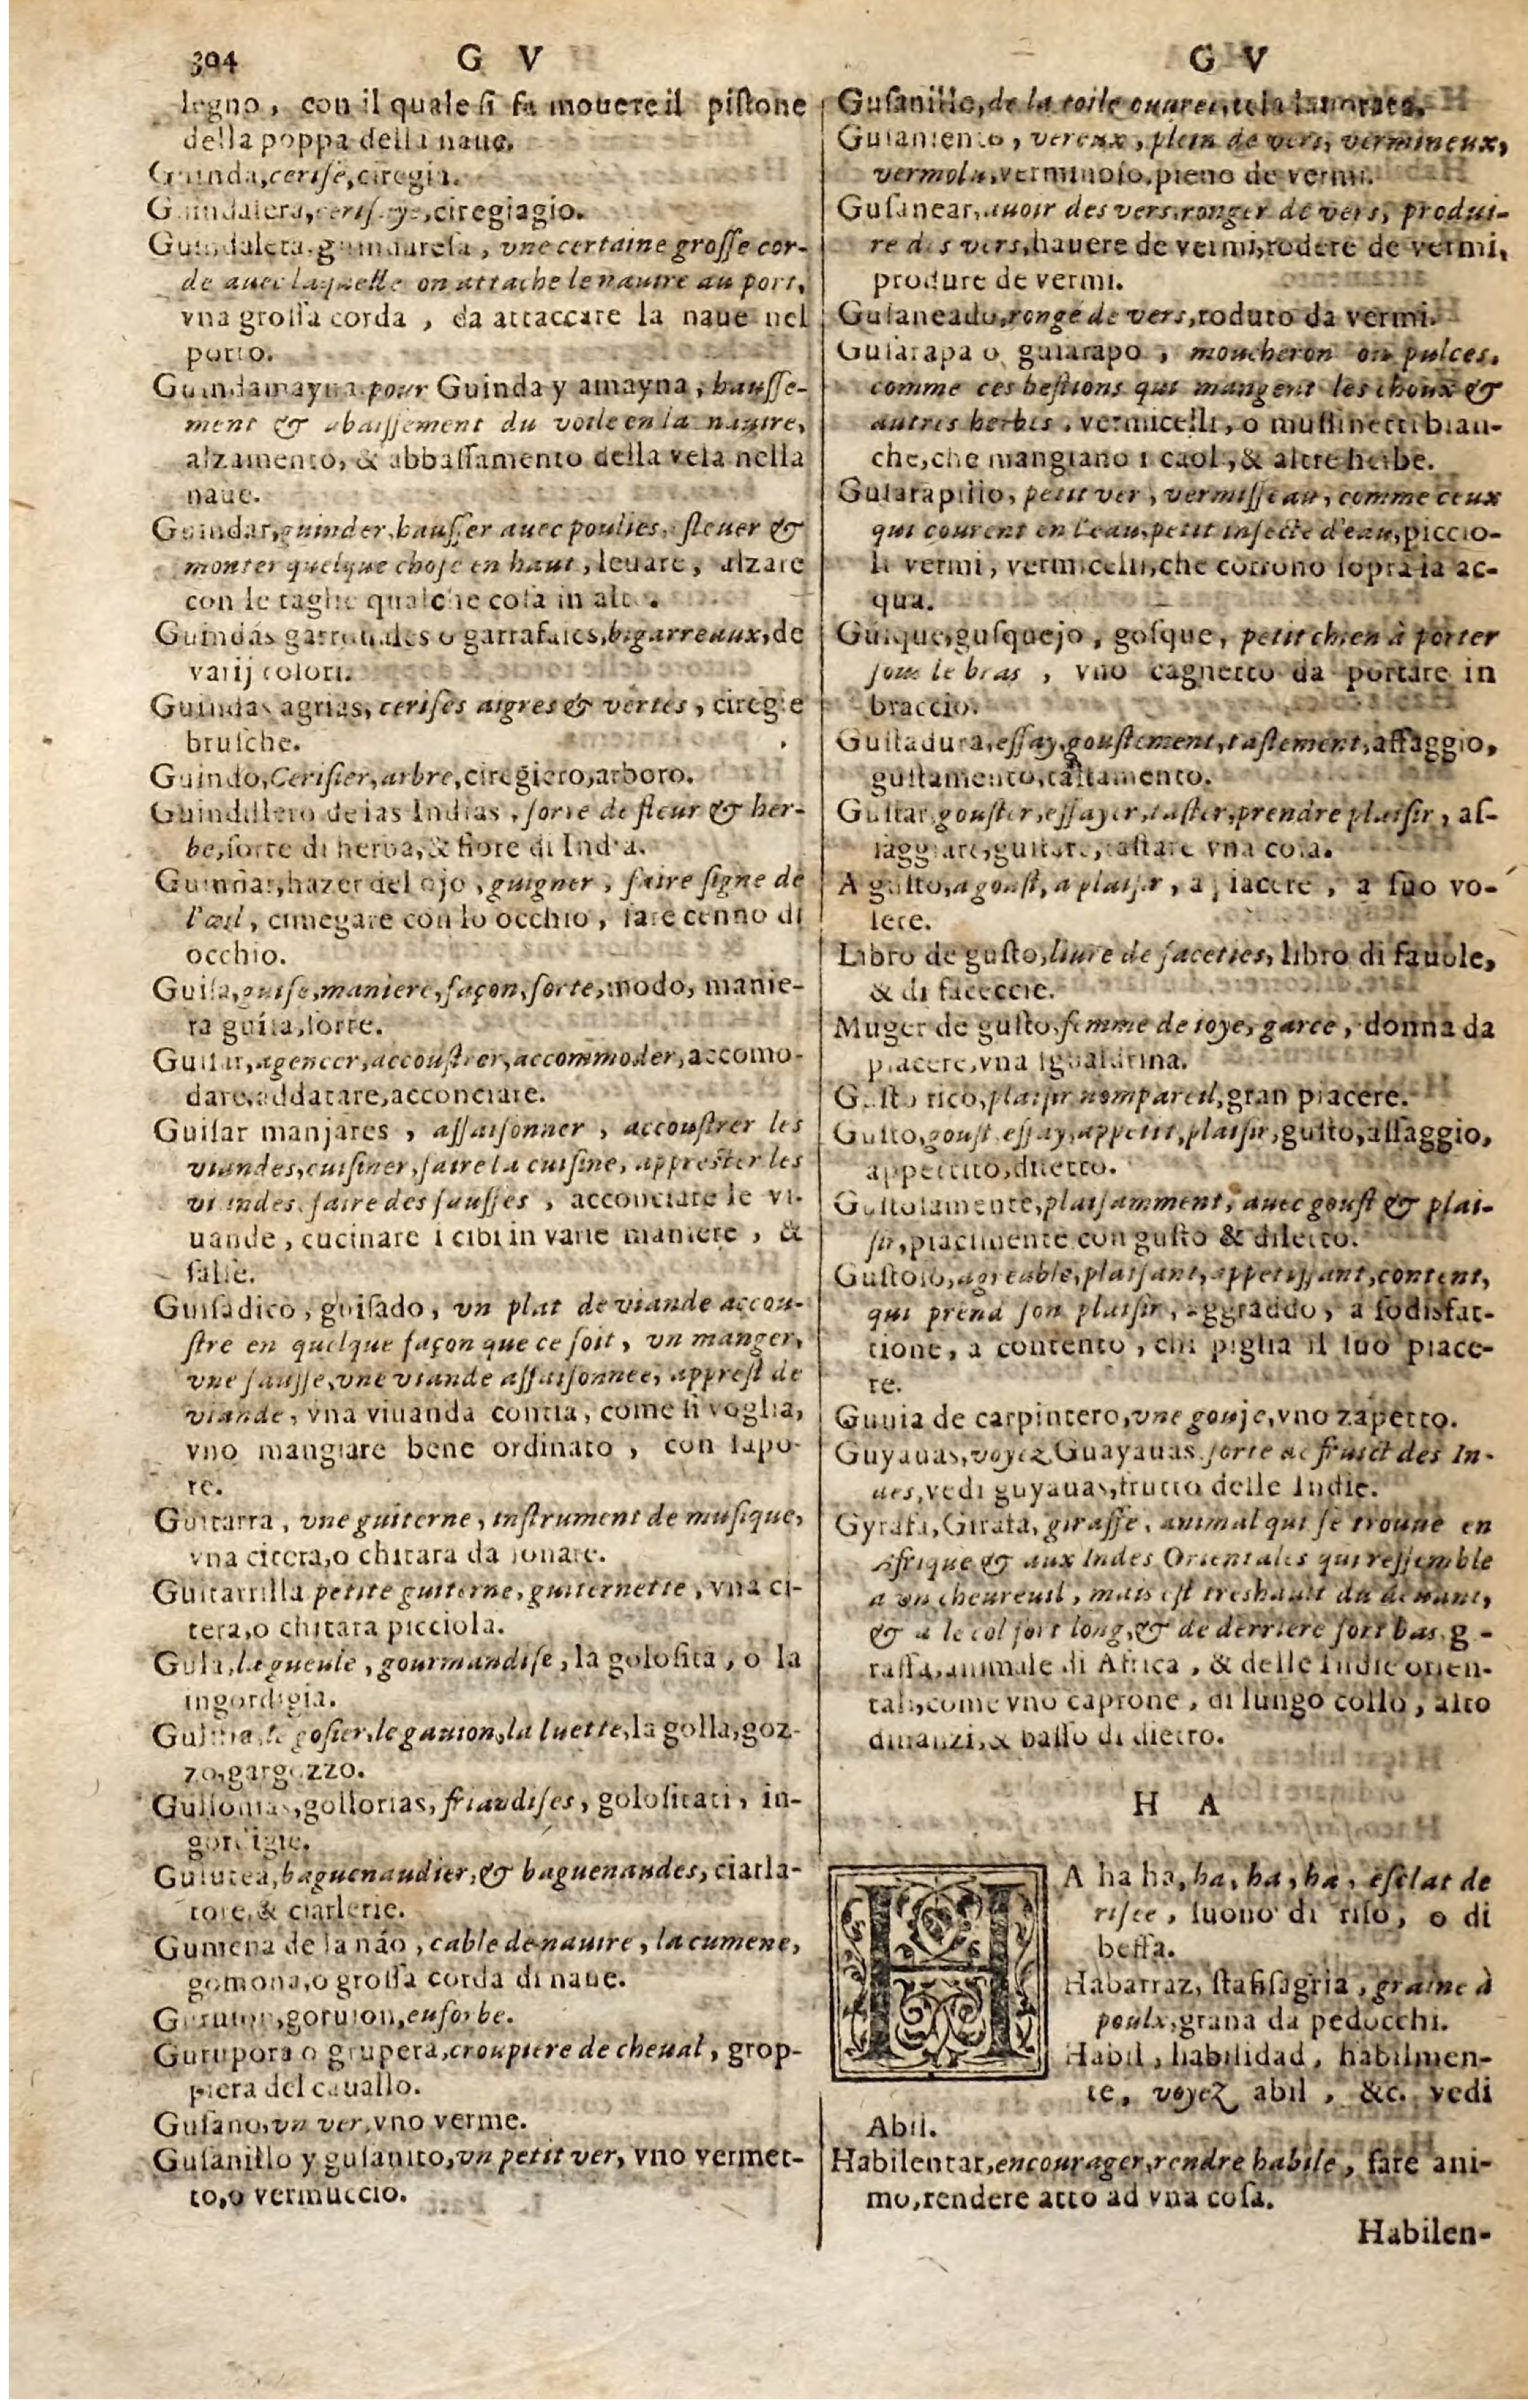 394 G V
G V
legno, con il quale si fa mouere il pistone
della poppa della naue.
Guinda, cerise, ciregia.
Guindalera, cerisaye, ciregiagio.
Guindaleta, guindaresa, vne certaine grosse cor-
de auec laquelle on attache le nauire au port,
vna grossa corda, da attaccare la naue nel
porto.
Guindamayna pour Guinda y amayna, hausse-
ment & abaissement du voile en la nauire,
alzamento, & abbassamento della vela nella
naue.
Guindar, guinder, hausser auec poulies, esleuer &
monter quelque chose en haut, leuare, alzare
con le taglie qualche cosa in alto.
Guindas garrouales o garrafales, bigarreaux, de
varij colori.
Guindas agrias, cerises aigres & vertes, ciregie
brusche.
Guindo, Cerisier, arbre, ciregiero, arboro.
Guindillero de las Indias, sorte de fleur & her-
be, sorte di herba, & fiore di India.
Guiñar, hazer del ojo, guigner, faire signe de
l'œil, cimegare con lo occhio, fare cenno di
occhio.
Guisa, guise, maniere, façon, sorte, modo, manie-
ra guisa, sorte.
Guisar, agencer, accoustrer, accommoder, accomo-
dare, addatare, acconciare.
Guisar manjares, assaisonner, accoustrer les
viandes, cuisiner, faire la cuisine, apprester les
viandes, faire des sausses, acconciare le vi-
uande, cucinare i cibi in varie maniere, &
salse.
Guisadico, guisado, vn plat de viande accou-
stre en quelque façon que ce soit, vn manger,
vne sausse, vne viande assaisonnee, apprest de
viande, vna viuanda contia, come si voglia,
vno mangiare bene ordinato, con sapo-
re.
Guitarra, vne guiterne, instrument de musique,
vna citera, o chitara da sonare.
Guitarrilla petite guiterne, guiternette, vna ci-
tera, o chitara picciola.
Gula, la gueule, gourmandise, la golosita, o la
ingordigia.
le gosier, le gauion, la luette, la golla, goz-
zo, gargozzo.
Gullorias, gollorias, friandises, golositati, in-
gordigie.
Gulutea, baguenaudier, & baguenaudes, ciarla-
tore, & ciarlerie.
Gumena de la náo, cable de nauire, la cumene,
gomona, o grossa corda di naue.
gorujon, euforbe.
Gurupora o grupera, croupiere de cheual, grop-
piera del cauallo.
Gusano, vn ver, vno verme.
Gusanillo y gusanito, vn petit ver, vno vermet-
to, o vermuccio.
Gusanillo, de la toile ouuree, tela lauorata.
Gusaniento, vereux, plein de vers, vermineux,
vermolu, verminoso, pieno de vermi.
Gusanear, auoir des vers, ronger de vers, produi-
re des vers, hauere de vermi, rodere de vermi,
produre de vermi.
Gusaneado, rongé de vers, roduto da vermi.
Gusarapa o gusarapo, moucheron ou pulces,
comme ces bestions qui mangent les choux &
autres herbes, vermicelli, o mussinetti bian-
che, che mangiano i caoli, & altre herbe.
Gusarapillo, petit ver, vermisseau, comme ceux
qui courent en l'eau, petit insecte d'eau, piccio-
li vermi, vermicelli, che corrono sopra la ac-
qua.
Gusque, gusquejo, gosque, petit chien à porter
sous le bras, vno cagnetto da portare in
braccio.
Gustadura, essay, goustement, tastement, assaggio,
gustamento, tastamento.
Gustar, gouster, essayer, taster, prendre plaisir, as-
saggiare, gustare, tastare vna cosa.
A gusto, a goust, a plaisir, a piacere, a suo vo-
lere.
Libro de gusto, liure de faceties, libro di fauole,
& di facecie.
Muger de gusto, femme de ioye, garce, donna da
piacere, vna sgualdrina.
Gusto rico, plaisir nompareil, gran piacere.
Gusto, goust, essay, appetit, plaisir, gusto, assaggio,
appettito, diletto.
Gustosamente, plaisamment, auec goust & plai-
sir, piacimente con gusto & diletto.
Gustoso, agreable, plaisant, appetissant, content,
qui prend son plaisir, aggraddo, a sodisfat-
tione, a contento, chi piglia il suo piace-
re.
Guuia de carpintero, vne gouje, vno zapetto.
Guyauas, voyez Guayauas sorte de fruict des In-
des, vedi guyauas, frutto delle Indie.
Gyrafa, Girafa, giraffe, animal qui se trouue en
Afrique & aux Indes Orientales qui ressemble
a vn cheureuil, mais est treshault du deuant,
& a le col fort long, & de derriere fort bas, g -
raffa, animale di Africa, & delle Indie orien-
tali, come vno caprone, di lungo collo, alto
dinanzi, & basso di dietro.
H A
HA ha ha, ha, ha, ha, esclat de
risee, suono di riso, o di
beffa.
Habarraz, stafisagria, graine à
poulx, grana da pedocchi.
Habil, habilidad, habilmen-
te, voyez abil, &c. vedi
Abil.
Habilentar, encourager, rendre habile, fare ani-
mo, rendere atto ad vna cosa.
Habilen-